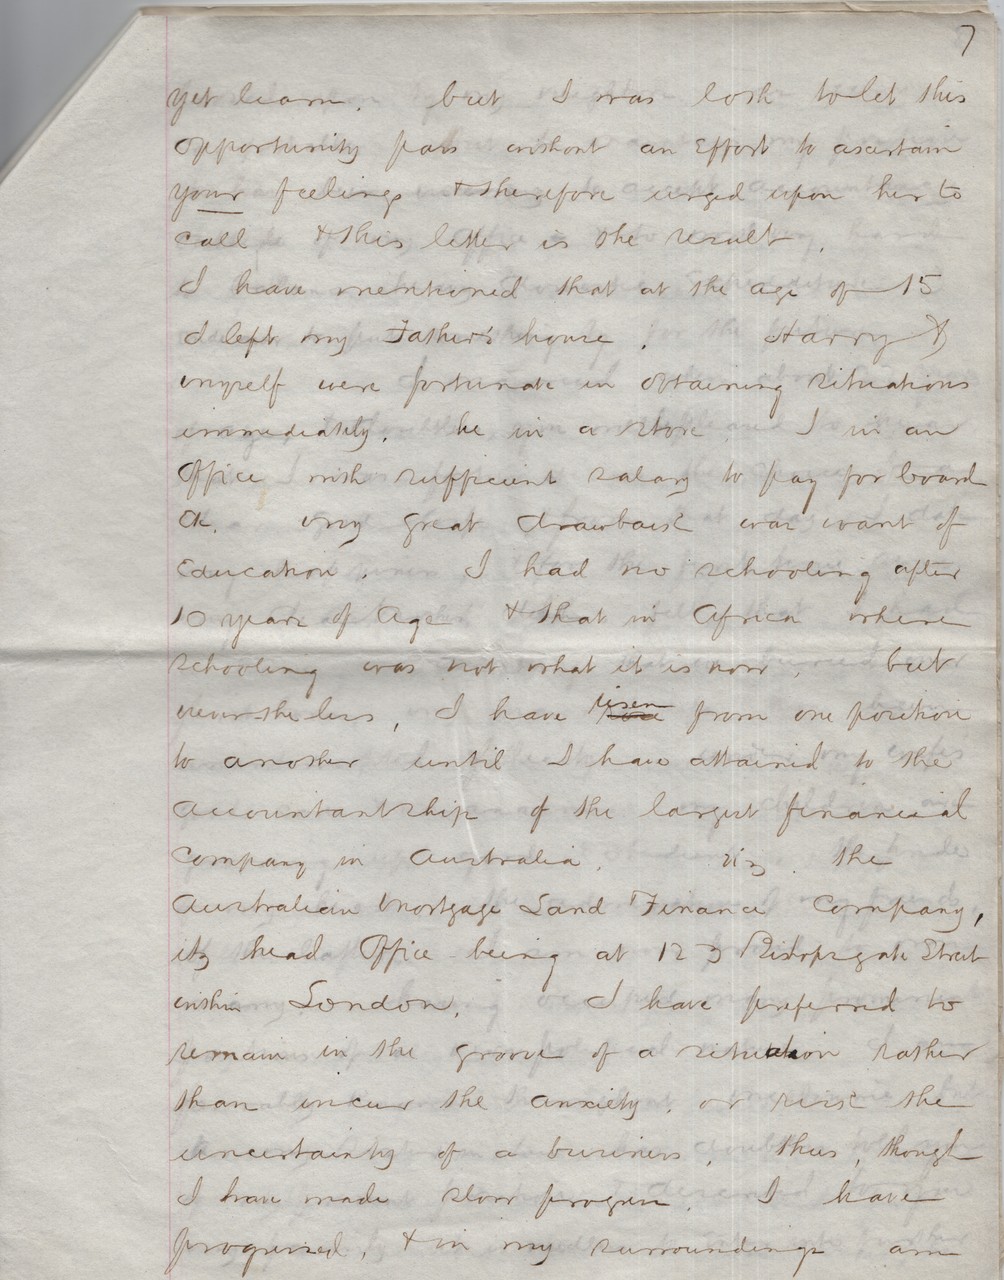 7
yet learn. but I was loth to let this
opportunity pass without an Effort to ascertain
your feelings & therefore urged upon her to
call & this letter is the result.
I have mentioned that at the age of 15
I left my Father's house. Harry &
myself were fortunate in obtaining situations
immediately. he in a store I in an
Office with sufficient salary to pay for board
&c. my great drawback was want of
Education. I had no schooling after
10 years of Age & that in Africa where
schooling was not what it is now, but
nevertheless, I have risen from one position
to another until I have attained to the
Accountantship of the largest financial
Company in Australia. viz. the
Australian Mortgage Land Finance Company,
its head Office being at 123 Bishopsgate Street
within London. I have preferred to
remain in the groove of a situation rather
than incur the anxiety, or risk the
uncertainty of a business, thus, though
I have made slow progress. I have
progressed, & in my surroundings am